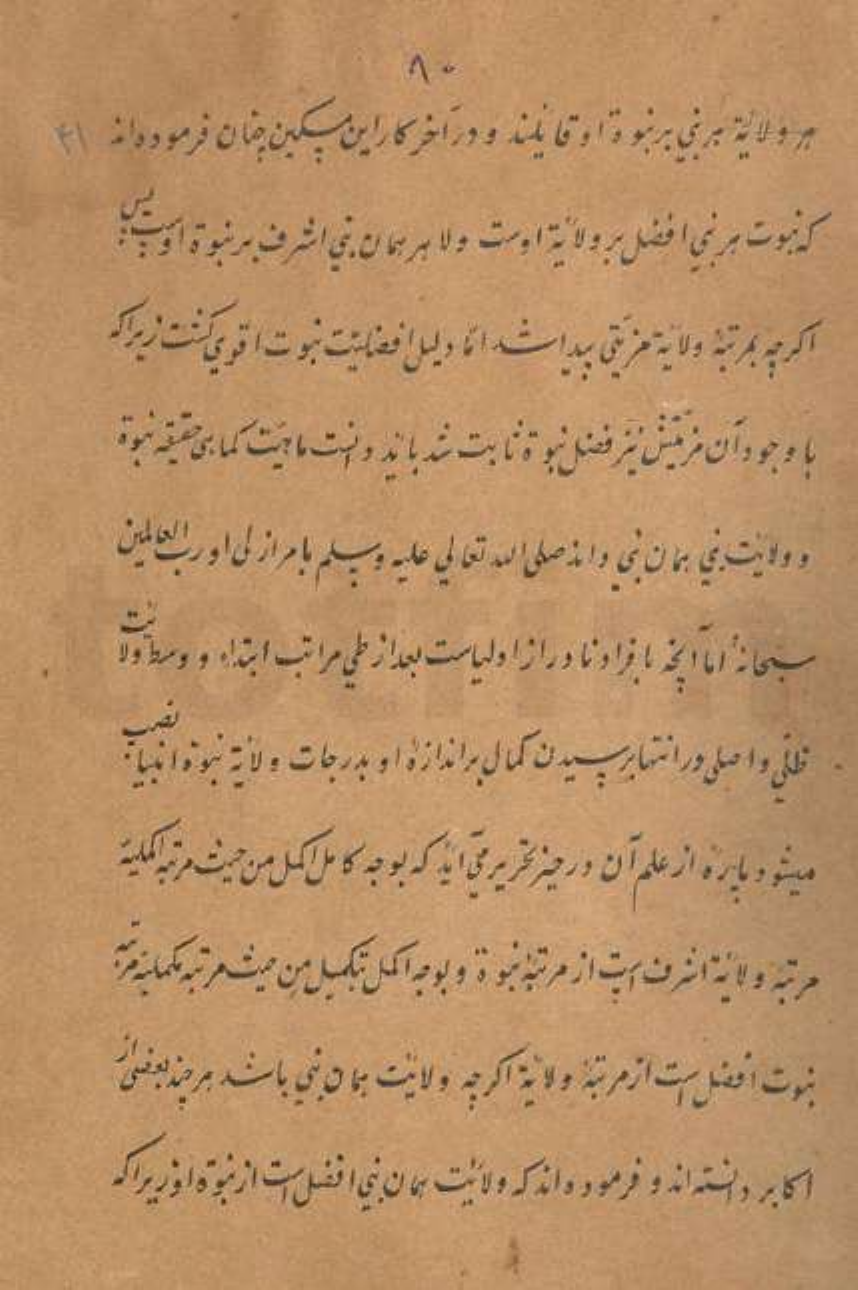 ۸۰
۴۱
هر ولایة هر نبي بر نبوة او قایلند و در آخر کار این مسکین چنان فرموده اند
که نبوت هر نبي افضل بر ولایة اوست ولا هر همان نبي اشرف بر نبوة اوست پس
اکرچه بمرتبهٔ ولایة مزیّتی پیدا شد امّا دلیل افضلیّت نبوت اقوي کشت زیراکه
با وجود آن مزیّتش نیز فضل نبوة ثابت شد باید دانست ماهیّت کماهی حقیقه نبوة
و ولایت نبي همان نبي داند صلی الله تعالي علیه وسلم یا مر ازلی او رب العالمین
سبحانهٔ امّا آنچه بافراد نادر از اولیاست بعد از طي مراتب ابتداء و وسط ولایت
ظلّي و اصلی در انتها برسیدن کمال بر اندازهٔ او بدرجات ولایة نبوة انبیا نصیب
میشود پارهٔ از علم آن در حیز تحریر مي آید که بوجه کامل اکمل من حیث مرتبه اکملیة
مرتبهٔ ولایة اشرف است از مرتبهٔ نبوة و بوجه اکمل تکمیل من حیث مرتبه مکملیة مرتبه
نبوت افضل است از مرتبهٔ ولایة اکرچه ولایت همان نبي باشد هر چند بعضی از
اکابر دانسته اند و فرموده اند که ولایت همان نبي افضل است از نبوة او زیراکه